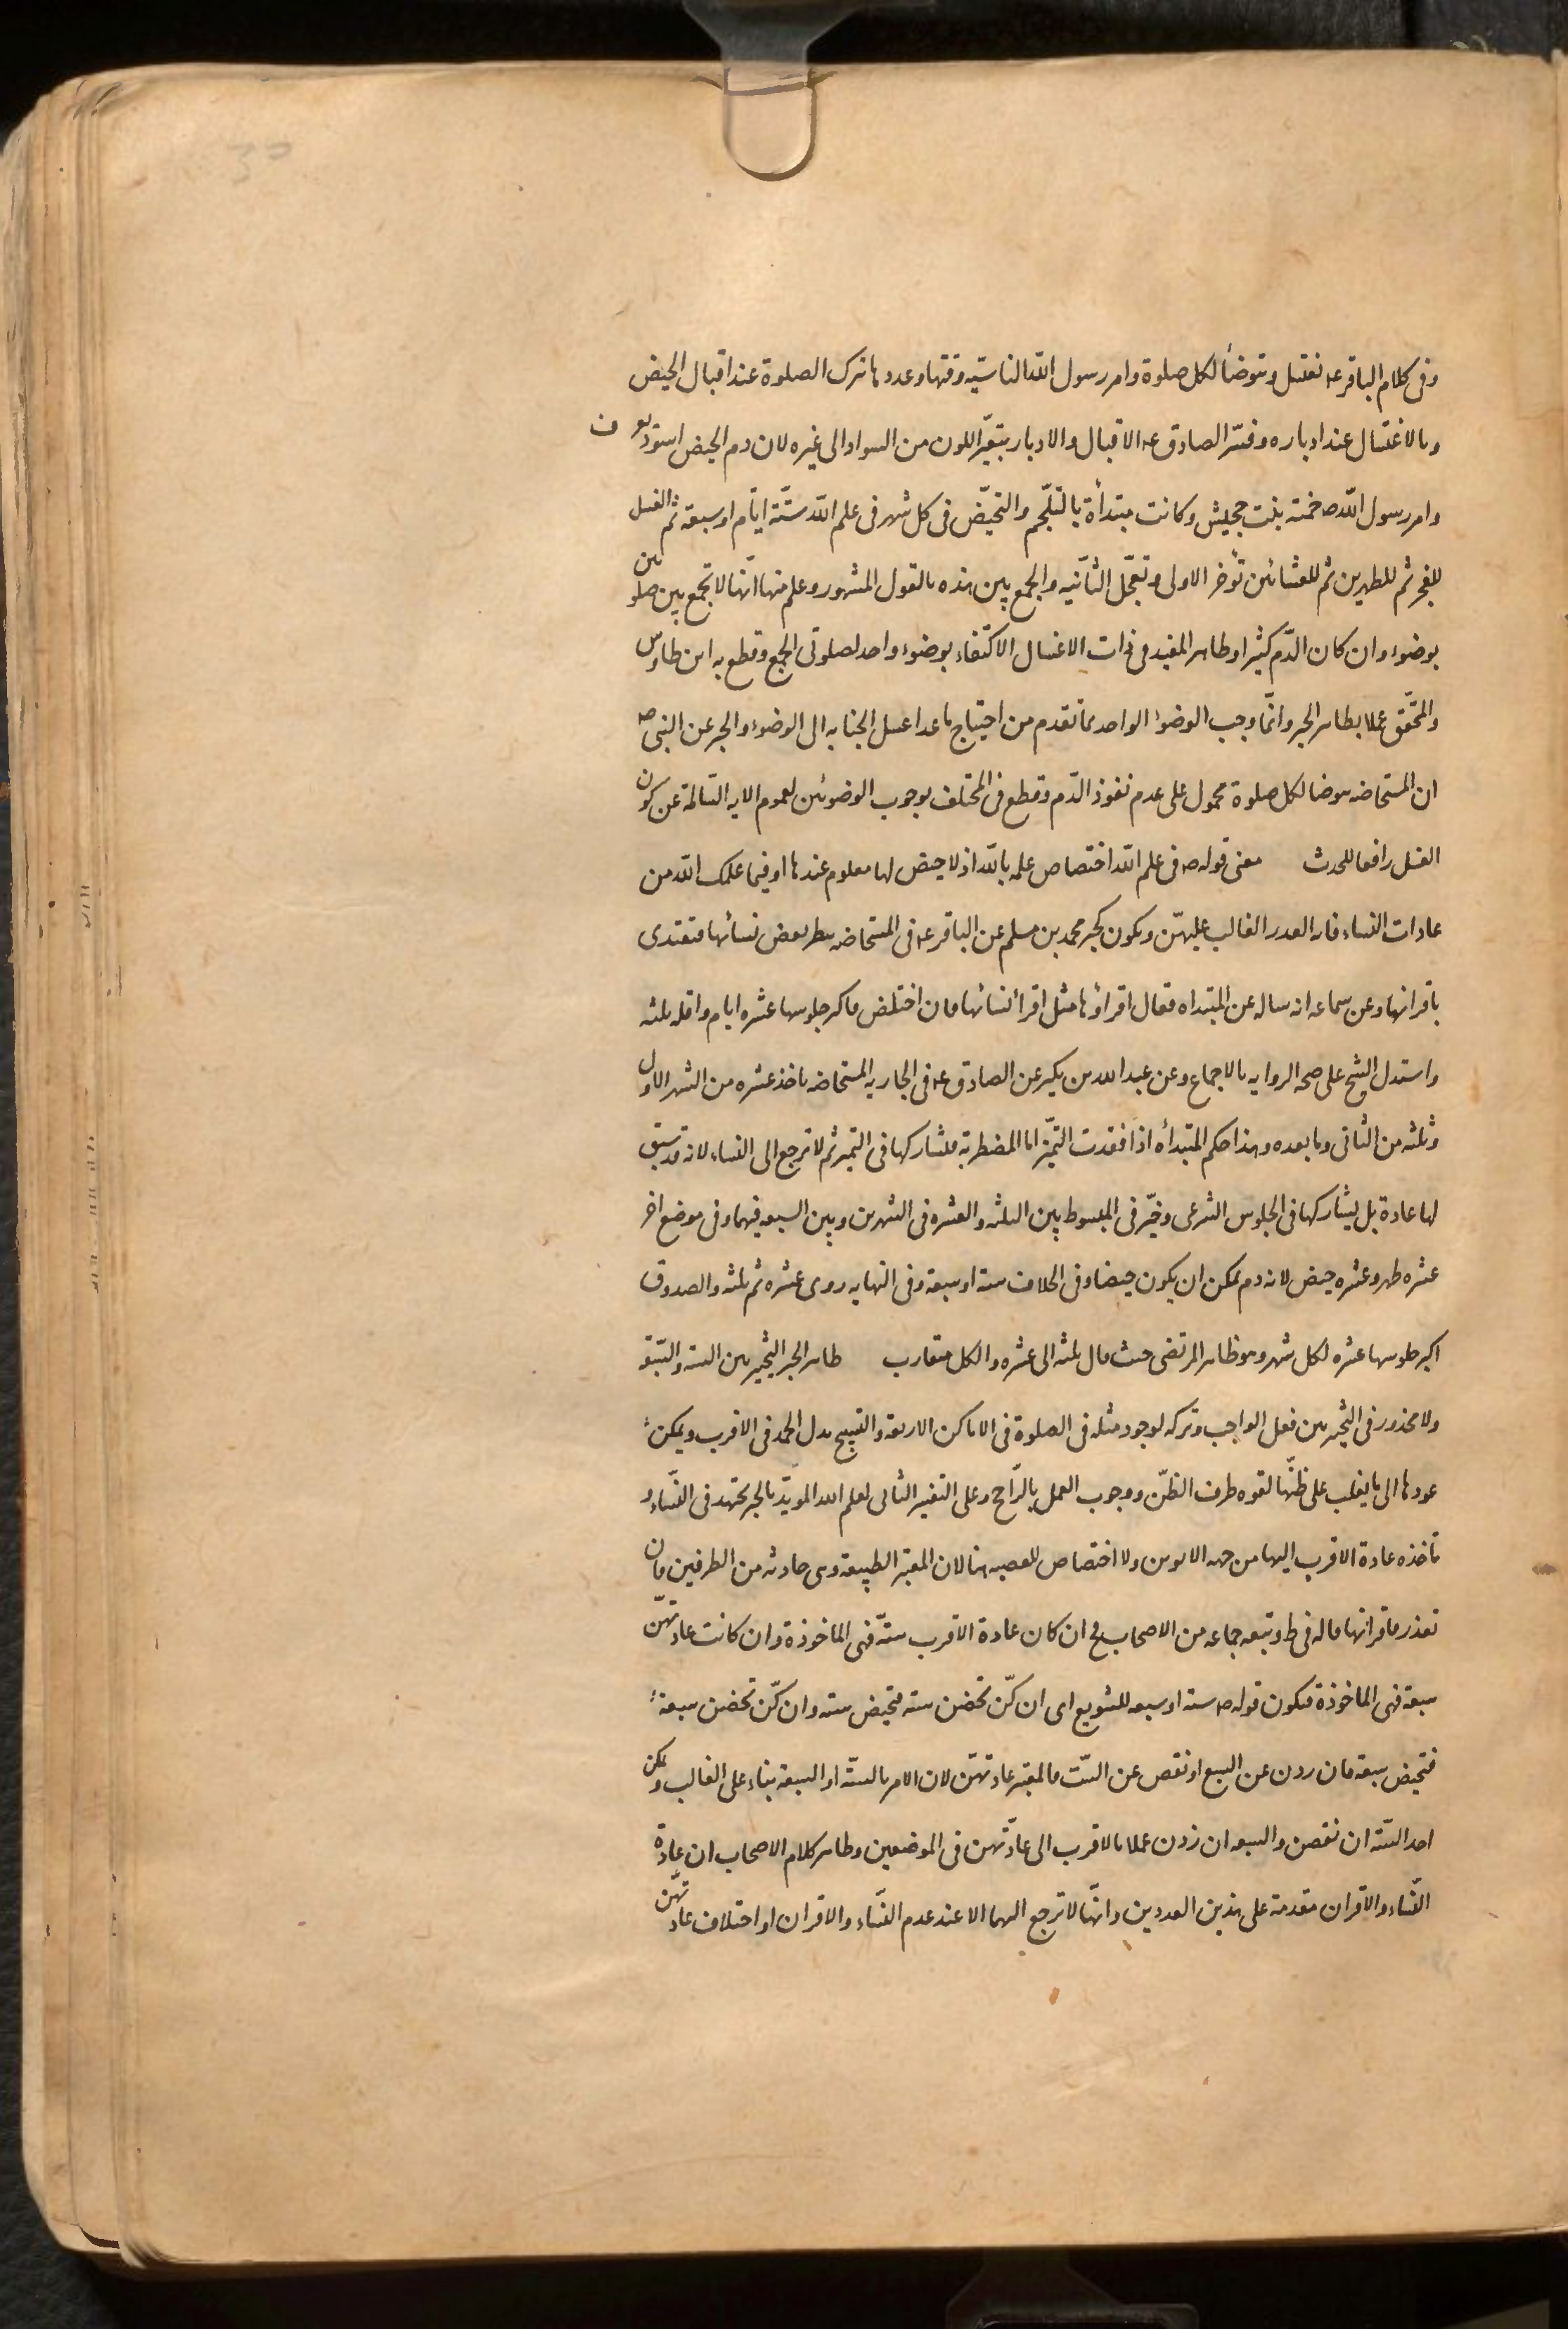 وفى كلام الباقر عه تغتسل وتتوضأ لكل صلوة وامر رسول الله الناسية وقتها وعددها بترك الصلوة عند اقبال الحيض
وبالاغتسال عند ادباره وفسّر الصادق عه الاقبال والادبار بتغيّر اللون من السواد الى غيره لان دم الحيض اسود يعرف
وامر رسول الله ص حمنة بنت جحيش وكانت مبتدأة بالتلجّم والتحيّض فى كل شهر فى علم الله ستّة ايّام او سبعة ثم الغسل
للفجر ثم للظهرين ثم للعشائين تؤخر الاولى وتعجّل الثانيه والجمع بين هذه بالقول المشهور وعلم منها انّها لا تجمع بين صلوتين
بوضوء وان كان الدّم كثيرا وظاهر المفيد فى ذات الاغسال الاكتفاء بوضوء واحد لصلوتى الجمع وقطع به ابن طاوس
والمحقق عملا بظاهر الخبر وانّما وجب الوضوء الواحد بما تقدم من احتياج ما عدا غسل الجنابه الى الوضوء والخبر عن النبى ص
ان المستحاضه توضا لكل صلوة محمول على عدم نفوذ الدّم وقطع فى المختلف بوجوب الوضوئين لعموم الايه السّالمة عن كون
الغسل رافعا للحدث معنى قوله ص فى علم الله اختصاص علمه بالله اذ لا حيض لها معلوم عندها او فيما علمك الله من
عادات النساء فانه القدر الغالب عليهنّ ويكون كخبر محمد بن مسلم عن الباقر عه فى المستحاضه تنظر بعض نسائها فتقتدى
باقرائها وعن سماعه انه ساله عن المبتداه فقال اقراؤها مثل اقراء نسائها فان اختلفن فاكثر جلوسها عشره ايام واقله ثلثه
واستدل الشيخ على صحة الروايه بالاجماع وعن عبد الله بن بكير عن الصادق عه فى الجاريه المستحاضه تاخذ عشره من الشهر الاول
وثلثه من الثانى وما بعده وهذا حكم المبتدأه اذا فقدت التميّز اما المضطربة فتشاركها فى التميز ثم لا ترجع الى النساء لانه قد سبق
لها عادة بل يشاركها فى الجلوس الشرعى وخيّر فى المبسوط بين الثلثه والعشره فى الشهرين وبين السبعه فيهما وفى موضع اخر
عشره طهر وعشره حيض لانه دم يمكن ان يكون حيضا وفى الخلاف ستة او سبعة وفى النهايه روى عشره ثم ثلثه والصدوق
اكثر جلوسها عشره لكل شهر وهو ظاهر المرتضى حيث قال ثلثه الى عشره والكل متقارب ظاهر الخبر التخيير بين الستة والسّبعة
ولا محذور فى التخيير بين فعل الواجب وتركه لوجود مثله فى الصلوة فى الاماكن الاربعة والتسبيح بدل الحمد فى الاقرب ويمكن
عودها الى ما يغلب على ظنّها لقوه طرف الظنّ ووجوب العمل بالرّاجح وعلى التفسير الثانى لعلم الله المويّد بالخبر تجتهد فى النّساء و
تاخذه عادة الاقرب اليها من جهه الابوين ولا اختصاص للعصبه هنا لان المعتبر الطبيعة وهى حادثه من الطرفين فان
تعذر فاقرانها قاله فى ط وتبعه جماعه من الاصحاب فح ان كان عادة الاقرب ستّة فهى الماخوذة وان كانت عادتهنّ
سبعة فهى الماخوذة فيكون قوله ص ستة او سبعه للتنويع اى ان كنّ تحضن ستة فتحيض ستة وان كنّ تحضن سبعة
فتحيض سبعة فان زدن عن السبع او نقصن عن الستّ فالمعتبر عادتهنّ لان الامر بالستّة او السبعة بناء على الغالب ويمكن
اخذ الستّة ان نقصن والسبعه ان زدن عملا بالاقرب الى عادتهن فى الموضعين وظاهر كلام الاصحاب ان عادة
النّساء والاقران مقدمة على هذين العددين وانّها لا ترجع اليهما الا عند عدم النّساء والاقران او اختلاف عادتهنّ